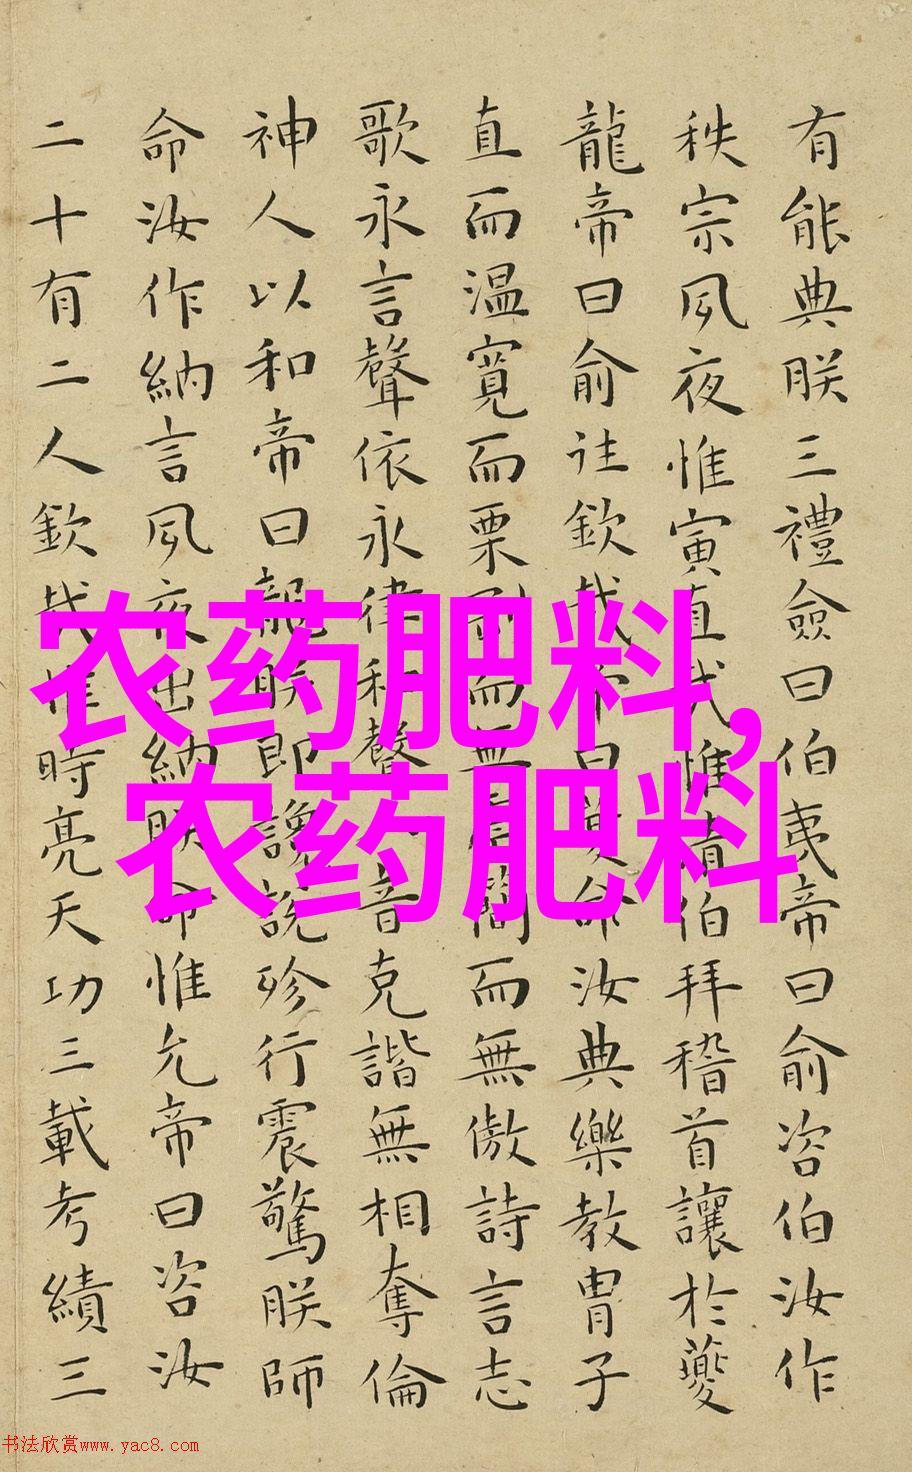 有能典朕三禮僉曰伯夷帝曰俞咨伯汝作
秩宗夙夜惟寅直哉惟清伯拜稽首讓於夔
龍帝曰俞往欽哉帝曰夔命汝典樂教胄子
直而溫寬而栗剛而無虐簡而無傲詩言志
歌永言聲依永律和聲八音克諧無相奪倫
神人以和帝曰龍朕堲讒說殄行震驚朕師
命汝作納言夙夜出納朕命惟允帝曰咨汝
二十有二人欽哉惟時亮天功三載考績三
农药肥料,
农药肥料
书法欣赏www.yac8.com